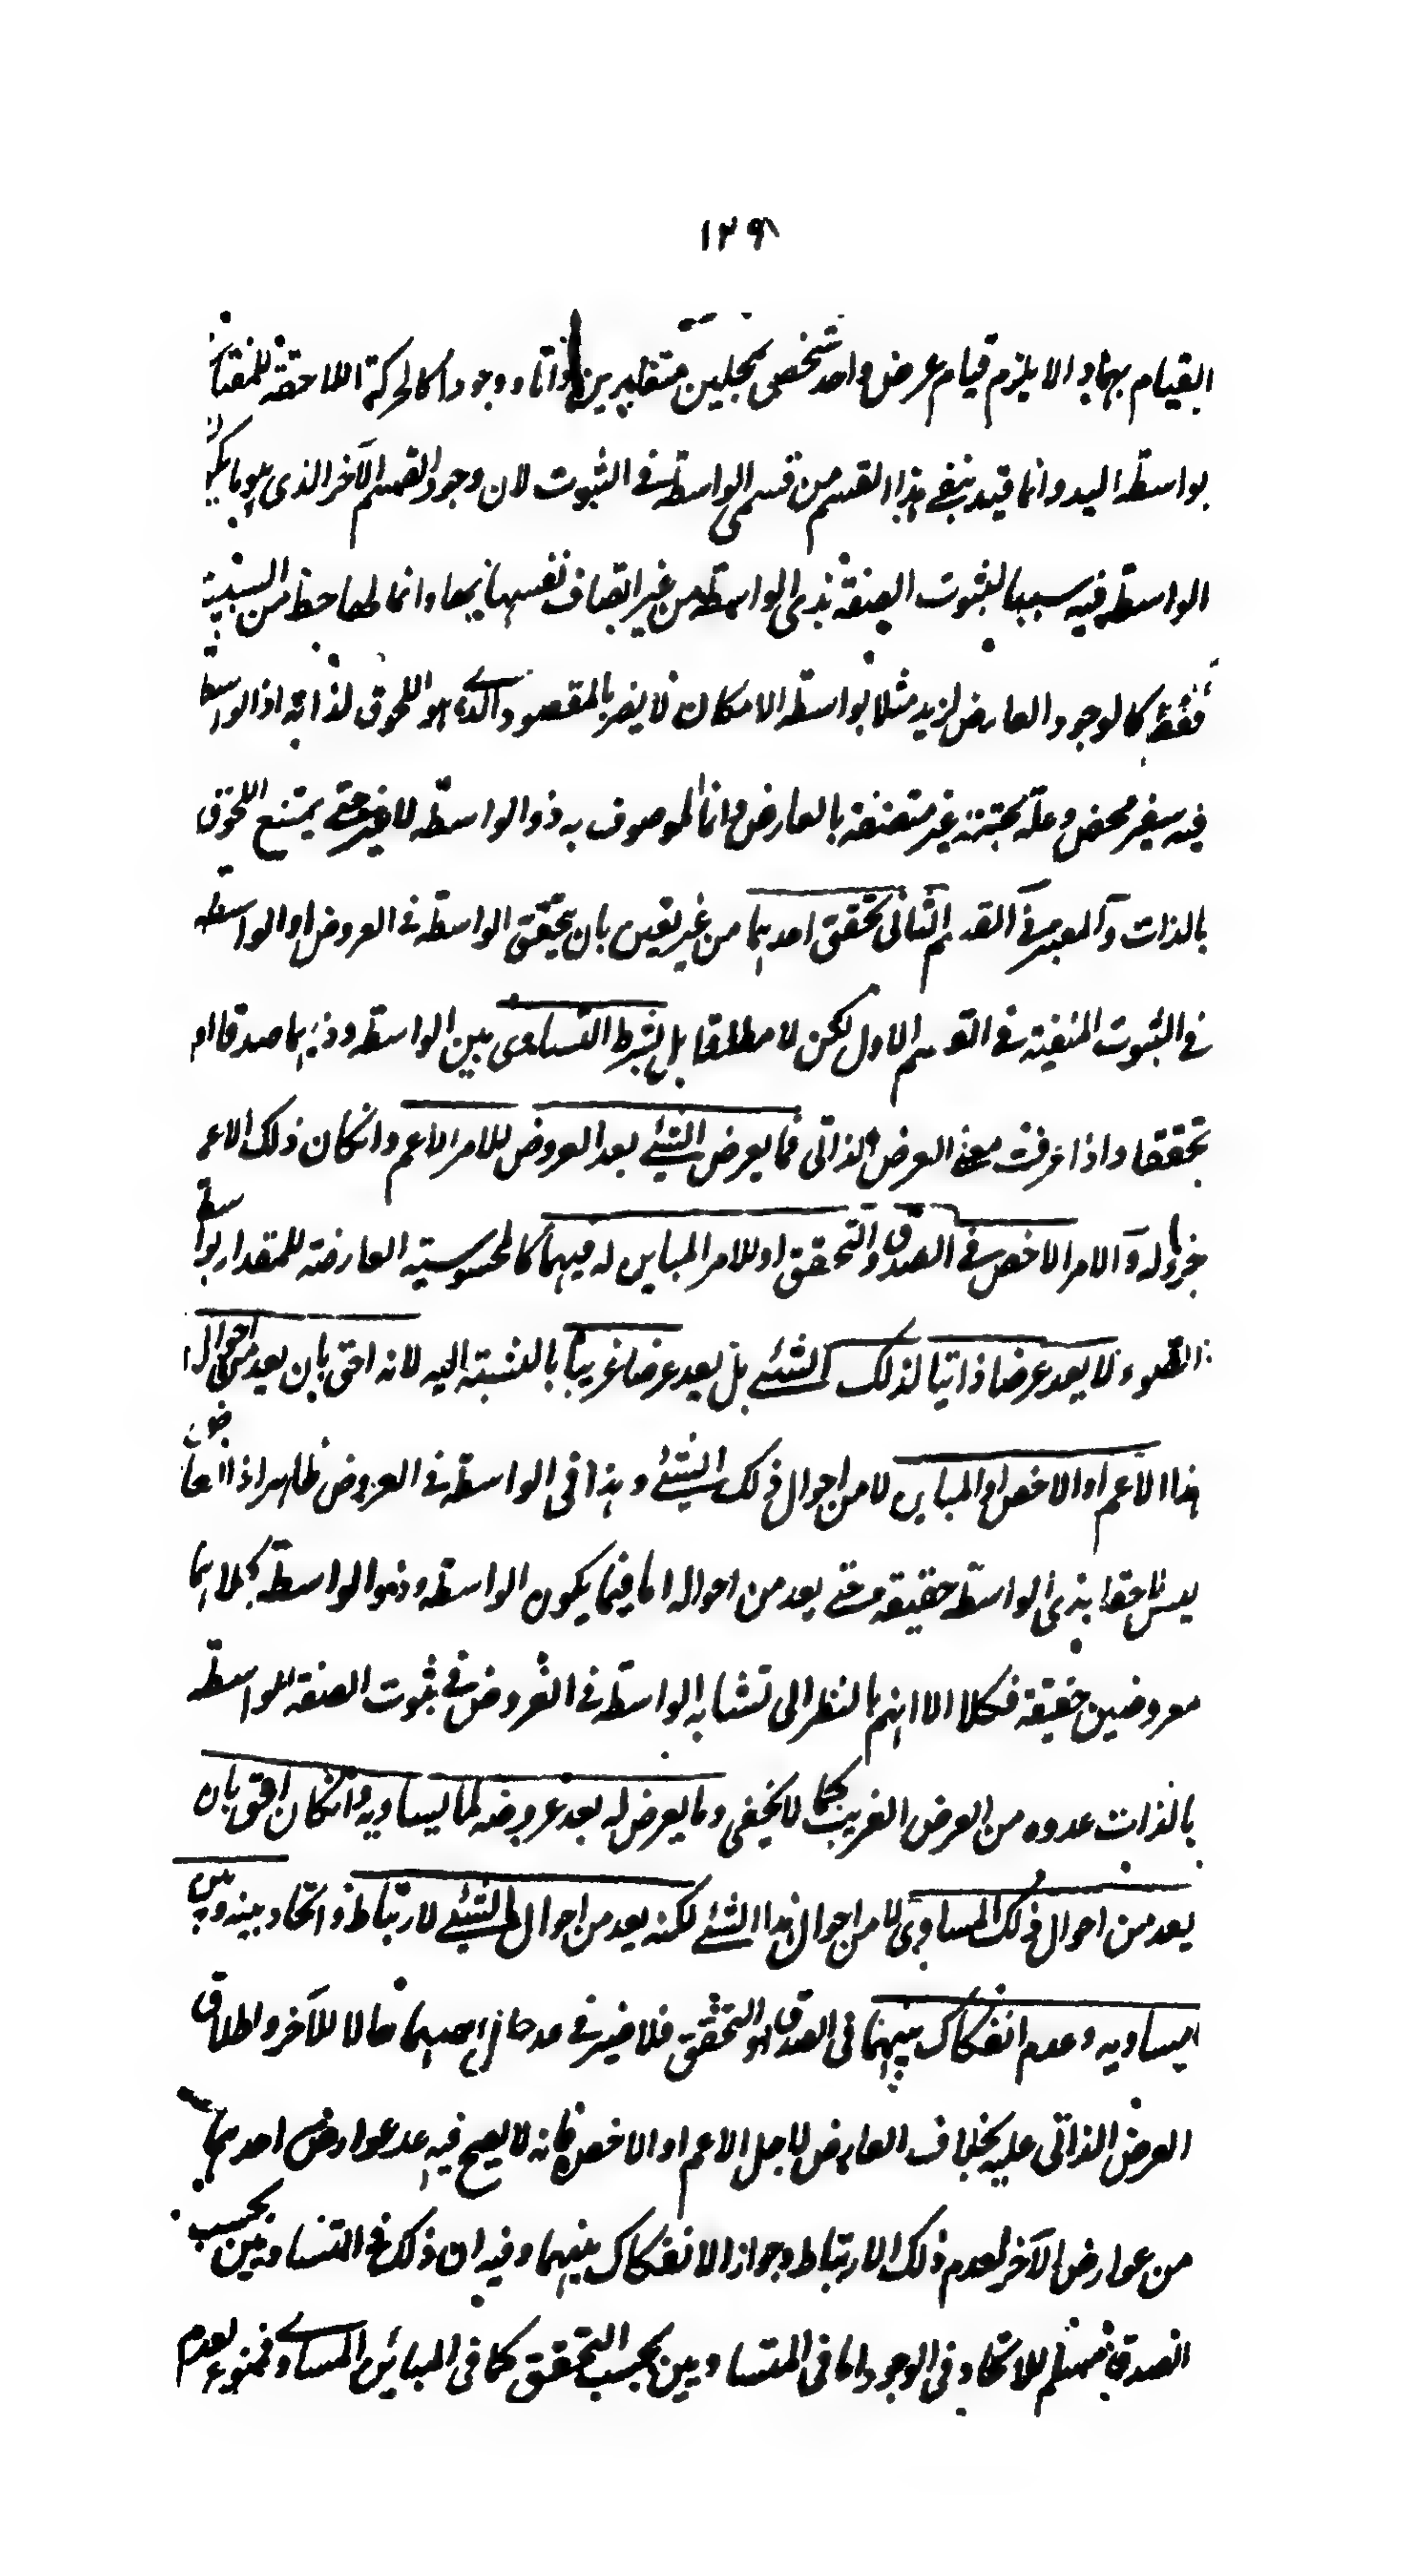 ١٢٩
القيام بهما والا يلزم قيام عرض واحد شخصى بمحلين متغايرين ذاتا ووجودا كالحركة اللاحقة للمفتاح
بواسطة اليد وانما قيد بنفى هذا القسم من قسمى الواسطة فى الثبوت لان وجود القسم الآخر الذى هو ما يكون
الواسطة فيه سببا لثبوت الصفة لذى الواسطة من غير اتصاف نفسها بها وانما لها حظ من السببية
فقط كالوجود العارض لزيد مثلا بواسطة الامكان لا يضر بالمقصود الذى هو اللحوق لذاته اذ الواسطة
فيه سفير محض وعلة غير متصفة بالعارض وانما الموصوف به ذو الواسطة لا غير حتى يمتنع اللحوق
بالذات والمعتبر فى القسم الثانى تحقق احدهما من غير تعين بان يتحقق الواسطة فى العروض او الواسطة
فى الثبوت المنفية فى القسم الاول لكن لا مطلقا بل بشرط التساوى بين الواسطة وذيها صدقا او
تحققا واذا عرفت معنى العرض الذاتى فما يعرض الشئ بعد العروض للامر الاعم وانكان ذلك الاعم
جزءا له والامر الاخص فى الصدق والتحقق او للامر المباين له فيهما كالمحسوسية العارضة للمقدار بواسطة
الضوء لا يعد عرضا ذاتيا لذلك الشئ بل يعد عرضا غريبا بالنسبة اليه لانه احق بان يعد من احوال
هذا الاعم او الاخص او المباين لا من احوال ذلك الشئ وهذا فى الواسطة فى العروض ظاهر اذ العارض
ليس لاحقا بذى الواسطة حقيقة حتى يعد من احواله اما فيما يكون الواسطة وذو الواسطة كلاهما
معروضين حقيقة فكلا الا انهم بالنظر الى تشابه الواسطة فى العروض فى ثبوت الصفة للواسطة
بالذات عدوه من العرض الغريب كما لا يخفى وما يعرض له بعد عروضه لما يساويه وانكان احق بان
يعد من احوال ذلك المساوى لا من احوال هذا الشئ لكنه يعد من احوال الشئ لارتباط واتحاد بينه وبين
ما يساويه وعدم انفكاك بينهما فى الصدق او التحقق فلا ضير فى عد حال احدهما حالا للآخر واطلاق
العرض الذاتى عليه بخلاف العارض لاجل الاعم او الاخص فانه لا يصح فيه عد عوارض احدهما
من عوارض الآخر لعدم ذلك الارتباط وجواز الانفكاك بينهما وفيه ان ذلك فى المتساويين بحسب
الصدق مسلم للاتحاد فى الوجود اما فى المتساويين بحسب التحقق كما فى المباين المساوى فممنوع لعدم